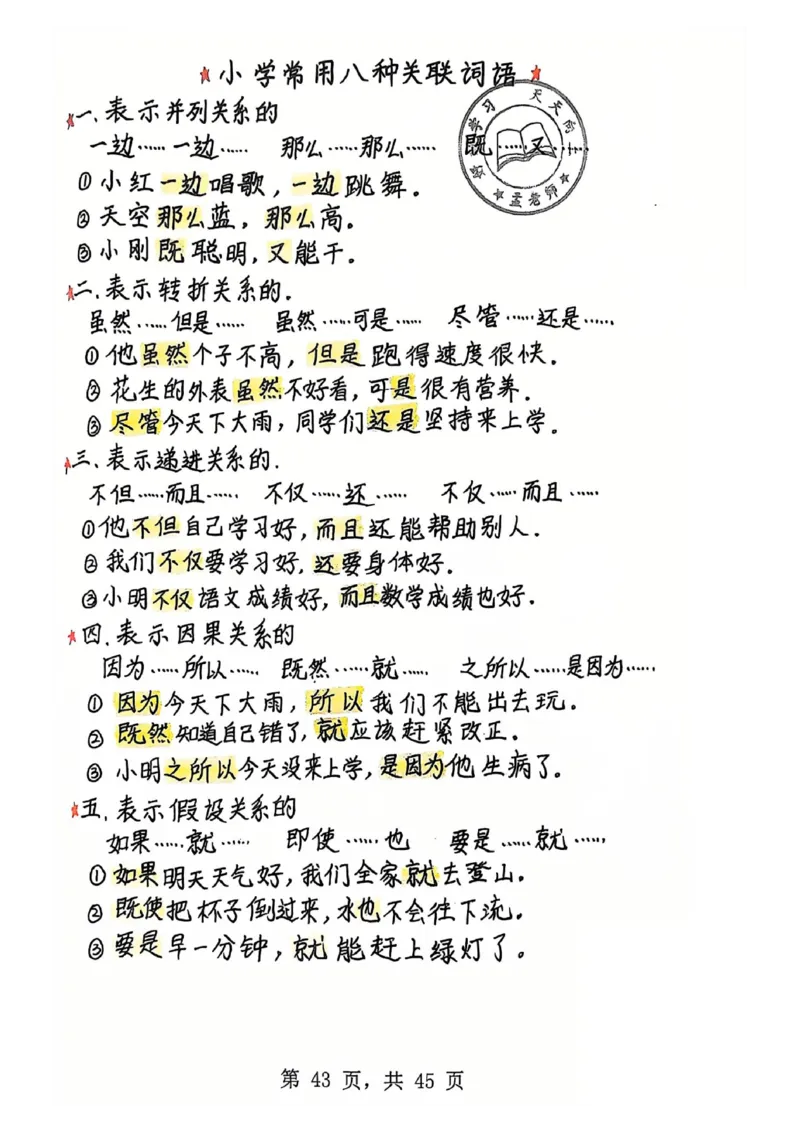 小学常用八种关联词语
一.表示并列关系的
一边……一边…… 那么……那么…… 既……又……
①小红一边唱歌,一边跳舞.
②天空那么蓝,那么高.
③小刚既聪明,又能干.
二.表示转折关系的.
虽然……但是…… 虽然……可是…… 尽管……还是……
①他虽然个子不高,但是跑得速度很快.
②花生的外表虽然不好看,可是很有营养.
③尽管今天下大雨,同学们还是坚持来上学.
三.表示递进关系的.
不但……而且…… 不仅……还…… 不仅……而且……
①他不但自己学习好,而且还能帮助别人.
②我们不仅要学习好,还要身体好.
③小明不仅语文成绩好,而且数学成绩也好.
四.表示因果关系的
因为……所以…… 既然……就…… 之所以……是因为……
①因为今天下大雨,所以我们不能出去玩.
②既然知道自己错了,就应该赶紧改正.
③小明之所以今天没来上学,是因为他生病了.
五.表示假设关系的
如果……就…… 即使……也 要是……就……
①如果明天天气好,我们全家就去登山.
②既使把杯子倒过来,水也不会往下流.
③要是早一分钟,就能赶上绿灯了。
第 43 页,共 45 页
天天向上
孟老师